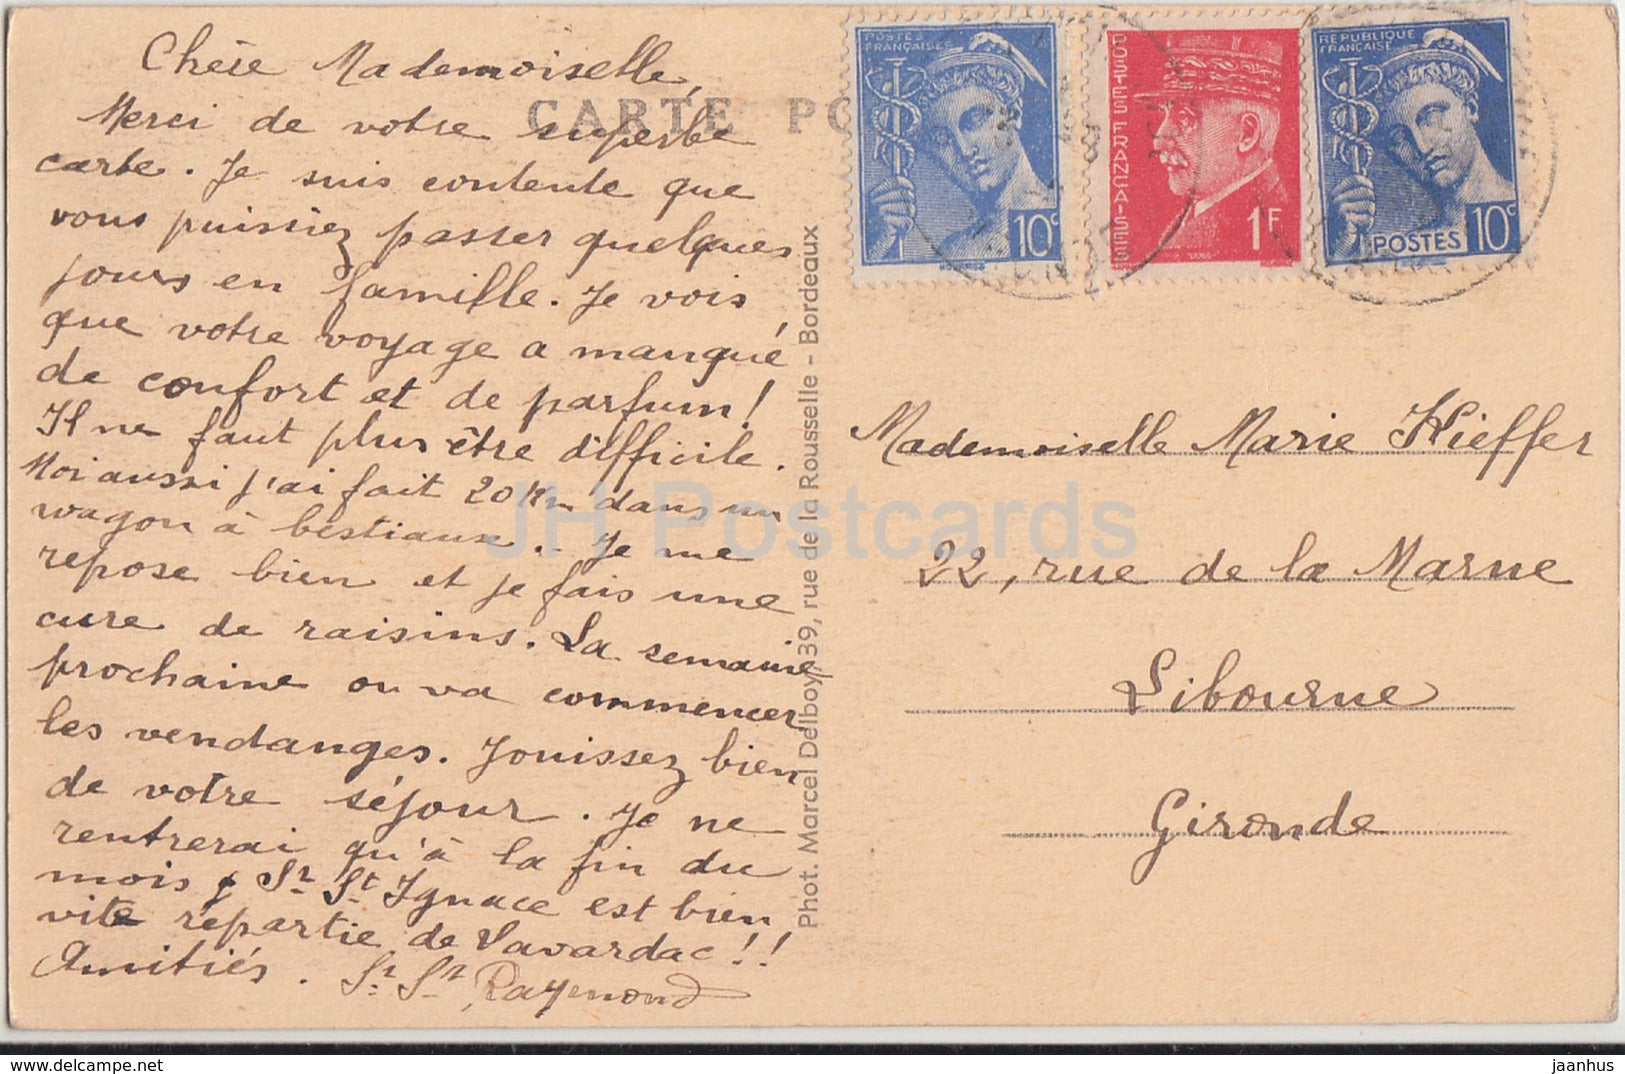 CARTE PO
Chère Mademoiselle,
Merci de votre superbe
carte. Je suis contente que
vous puissiez passer quelques
jours en famille. Je vois
que votre voyage a manqué
de confort et de parfum!
Il ne faut plus être difficile.
Moi aussi j'ai fait 20 Km dans un
wagon à bestiaux.. Je me
repose bien et je fais une
cure de raisins. La semaine
prochaine on va commencer
les vendanges. Jouissez bien
de votre séjour. Je ne
rentrerai qu'à la fin du
mois Sr St Ignace est bien
vite repartie de Lavardac!!
Amitiés. Sr St Raymond
Phot. Marcel Delboy, 39, rue de la Rousselle - Bordeaux
POSTES
FRANÇAISES
10c
POSTES FRANÇAISES
1F
RÉPUBLIQUE
FRANÇAISE
POSTES 10c
Mademoiselle Marie Kieffer
22, rue de la Marne
Libourne
Gironde
JH Postcards
www.delcampe.net
jaanhus